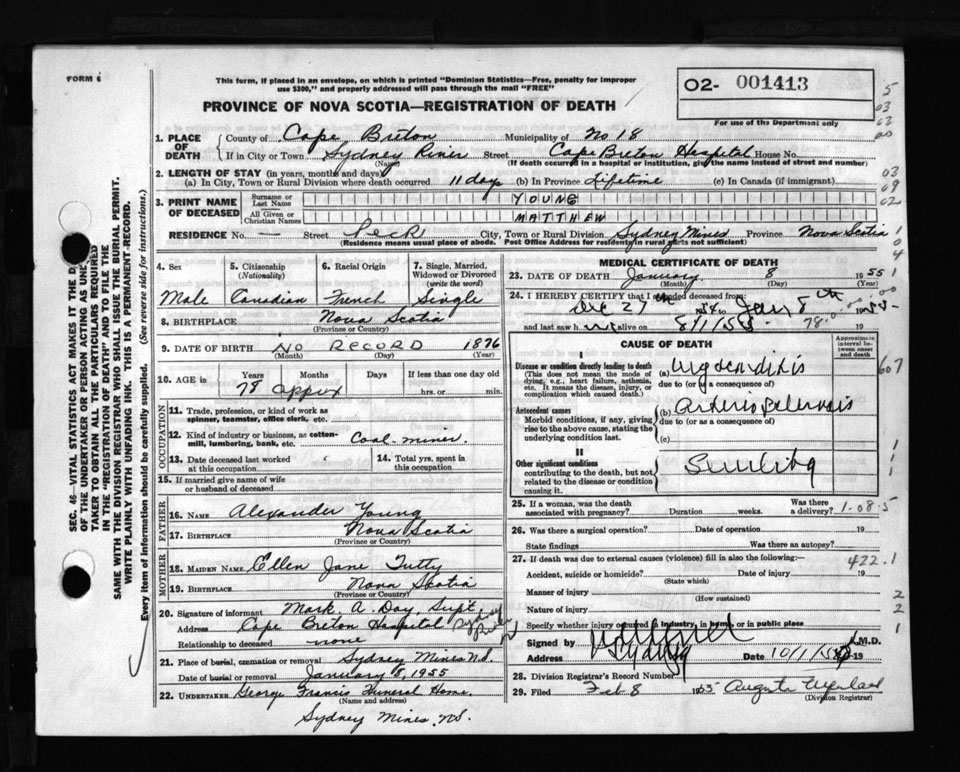 FORM 6
This form, if placed in an envelope, on which is printed "Dominion Statistics—Free, penalty for improper
use $300," and properly addressed will pass through the mail "FREE"
PROVINCE OF NOVA SCOTIA—REGISTRATION OF DEATH
02- 001413
For use of the Department only
1. PLACE OF DEATH
County of Cape Breton Municipality of No 18
If in City or Town Sydney River Street Cape Breton Hospital House No.
(Name) (If death occurred in a hospital or institution, give the name instead of street and number)
2. LENGTH OF STAY (in years, months and days)
(a) In City, Town or Rural Division where death occurred 11 days (b) In Province Lifetime (c) In Canada (if immigrant)
3. PRINT NAME OF DECEASED
Surname or Last Name YOUNG
All Given or Christian Names MATTHEW
RESIDENCE No. — Street Peck City, Town or Rural Division Sydney Mines Province Nova Scotia
(Residence means usual place of abode. Post Office Address for residents in rural parts not sufficient)
4. Sex
Male
5. Citizenship (Nationality)
Canadian
6. Racial Origin
French
7. Single, Married, Widowed or Divorced (write the word)
Single
8. BIRTHPLACE Nova Scotia
(Province or Country)
9. DATE OF BIRTH NO RECORD 1876
(Month) (Day) (Year)
10. AGE in
Years Months Days If less than one day old
78 approx hrs. or min.
OCCUPATION
11. Trade, profession, or kind of work as
spinner, teamster, office clerk, etc.
12. Kind of industry or business, as cotton-
mill, lumbering, bank, etc. Coal miner.
13. Date deceased last worked
at this occupation
14. Total yrs. spent in
this occupation
15. If married give name of wife
or husband of deceased
FATHER
16. NAME Alexander Young
17. BIRTHPLACE Nova Scotia
(Province or Country)
MOTHER
18. MAIDEN NAME Ellen Jane Tutty
19. BIRTHPLACE Nova Scotia
(Province or Country)
20. Signature of informant Mark. A. Day, Supt,
Address Cape Breton Hospital Sydney River
Relationship to deceased none
21. Place of burial, cremation or removal Sydney Mines N.S.
Date of burial or removal January 8, 1955
22. UNDERTAKER George Francis Funeral Home
(Name and address)
Sydney Mines, N.S.
MEDICAL CERTIFICATE OF DEATH
23. DATE OF DEATH January 8 1955
(Month) (Day) (Year)
24. I HEREBY CERTIFY that I attended deceased from:
Dec 27th to Jan 8th 1955
and last saw h im alive on 8/1/55. 78.0 19
CAUSE OF DEATH
Approximate interval between onset and death
I
Disease or condition directly leading to death
(This does not mean the mode of
dying, e.g., heart failure, asthenia,
etc. It means the disease, injury, or
complication which caused death.)
(a) Myocarditis
due to (or as a consequence of)
Antecedent causes
Morbid conditions, if any, giving
rise to the above cause, stating the
underlying condition last.
(b) Arteriosclerosis
due to (or as a consequence of)
(c)
II
Other significant conditions
contributing to the death, but not
related to the disease or condition
causing it.
Senility
25. If a woman, was the death
associated with pregnancy? Duration weeks. Was there a delivery?
1-08-5
26. Was there a surgical operation? Date of operation 19
State findings Was there an autopsy?
27. If death was due to external causes (violence) fill in also the following:—
422.1
Accident, suicide or homicide? Date of injury 19
(State which)
Manner of injury
(How sustained)
Nature of injury
Specify whether injury occurred in industry, in home, or in public place
Signed by M.D.
Address Sydney Date 10/1/55 19
28. Division Registrar's Record Number
29. Filed Feb 8 1955
(Division Registrar)
SEC. 46—VITAL STATISTICS ACT MAKES IT THE D
OF THE UNDERTAKER OR PERSON ACTING AS UNDE
TAKER TO OBTAIN ALL THE PARTICULARS REQUIRED
IN THE "REGISTRATION OF DEATH" AND TO FILE THE
SAME WITH THE DIVISION REGISTRAR WHO SHALL ISSUE THE BURIAL PERMIT.
WRITE PLAINLY WITH UNFADING INK. THIS IS A PERMANENT RECORD.
Every item of information should be carefully supplied. (See reverse side for instructions.)